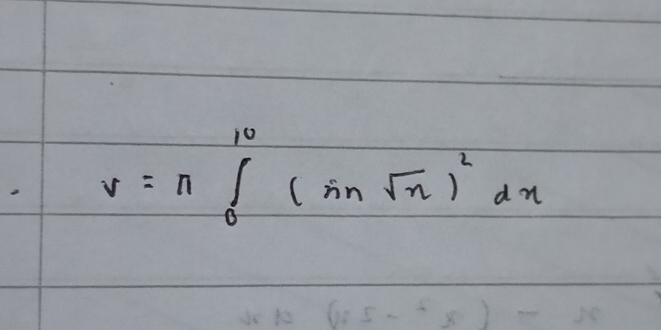 v = π ∫₀¹⁰ (sin √x)² dx